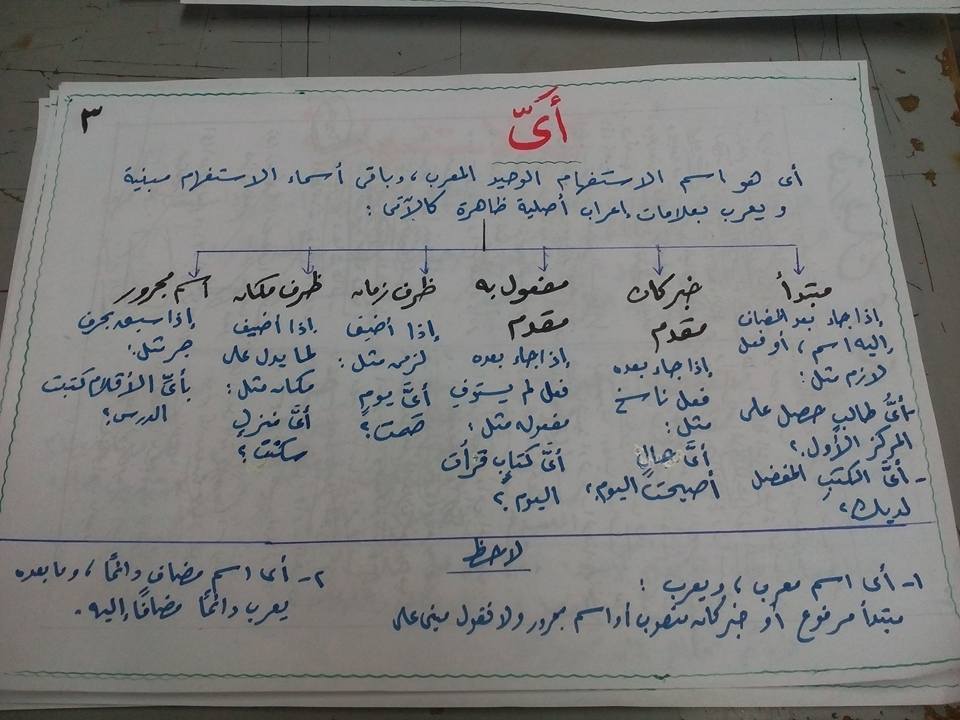 ٣
أىّ
أى هو اسم الاستفهام الوحيد المعرب، وباقى أسماء الاستفهام مبنية
ويعرب بعلامات إعراب أصلية ظاهرة كالآتى :
مبتدأ
إذا جاء بعد المضاف
إليه اسم، أو فعل
لازم مثل:
- أىُّ طالبٍ حصل على
المركز الأول؟
- أىُّ الكتبِ المفضل
لديك؟
خبر كان
مقدم
إذا جاء بعده
فعل ناسخ
مثل:
أىَّ حالٍ
أصبحت اليوم؟
مفعول به
مقدم
إذا جاء بعده
فعل لم يستوفِ
مفعوله مثل:
أىَّ كتابٍ قرأت
اليوم؟
ظرف زمان
إذا أضيف
لزمن مثل:
أىَّ يومٍ
صمت؟
ظرف مكان
إذا أضيف
لما يدل على
مكان مثل:
أىَّ منزلٍ
سكنت؟
اسم مجرور
إذا سبق بحرف
جر مثل:
بأىِّ الأقلام كتبت
الدرس؟
لاحظ
١- أى اسم معرب، ويعرب :
مبتدأ مرفوع أو خبر كان منصوب أو اسم مجرور ولا نقول مبنى على
٢- أى اسم مضاف دائمًا، وما بعده
يعرب دائمًا مضافًا إليه.